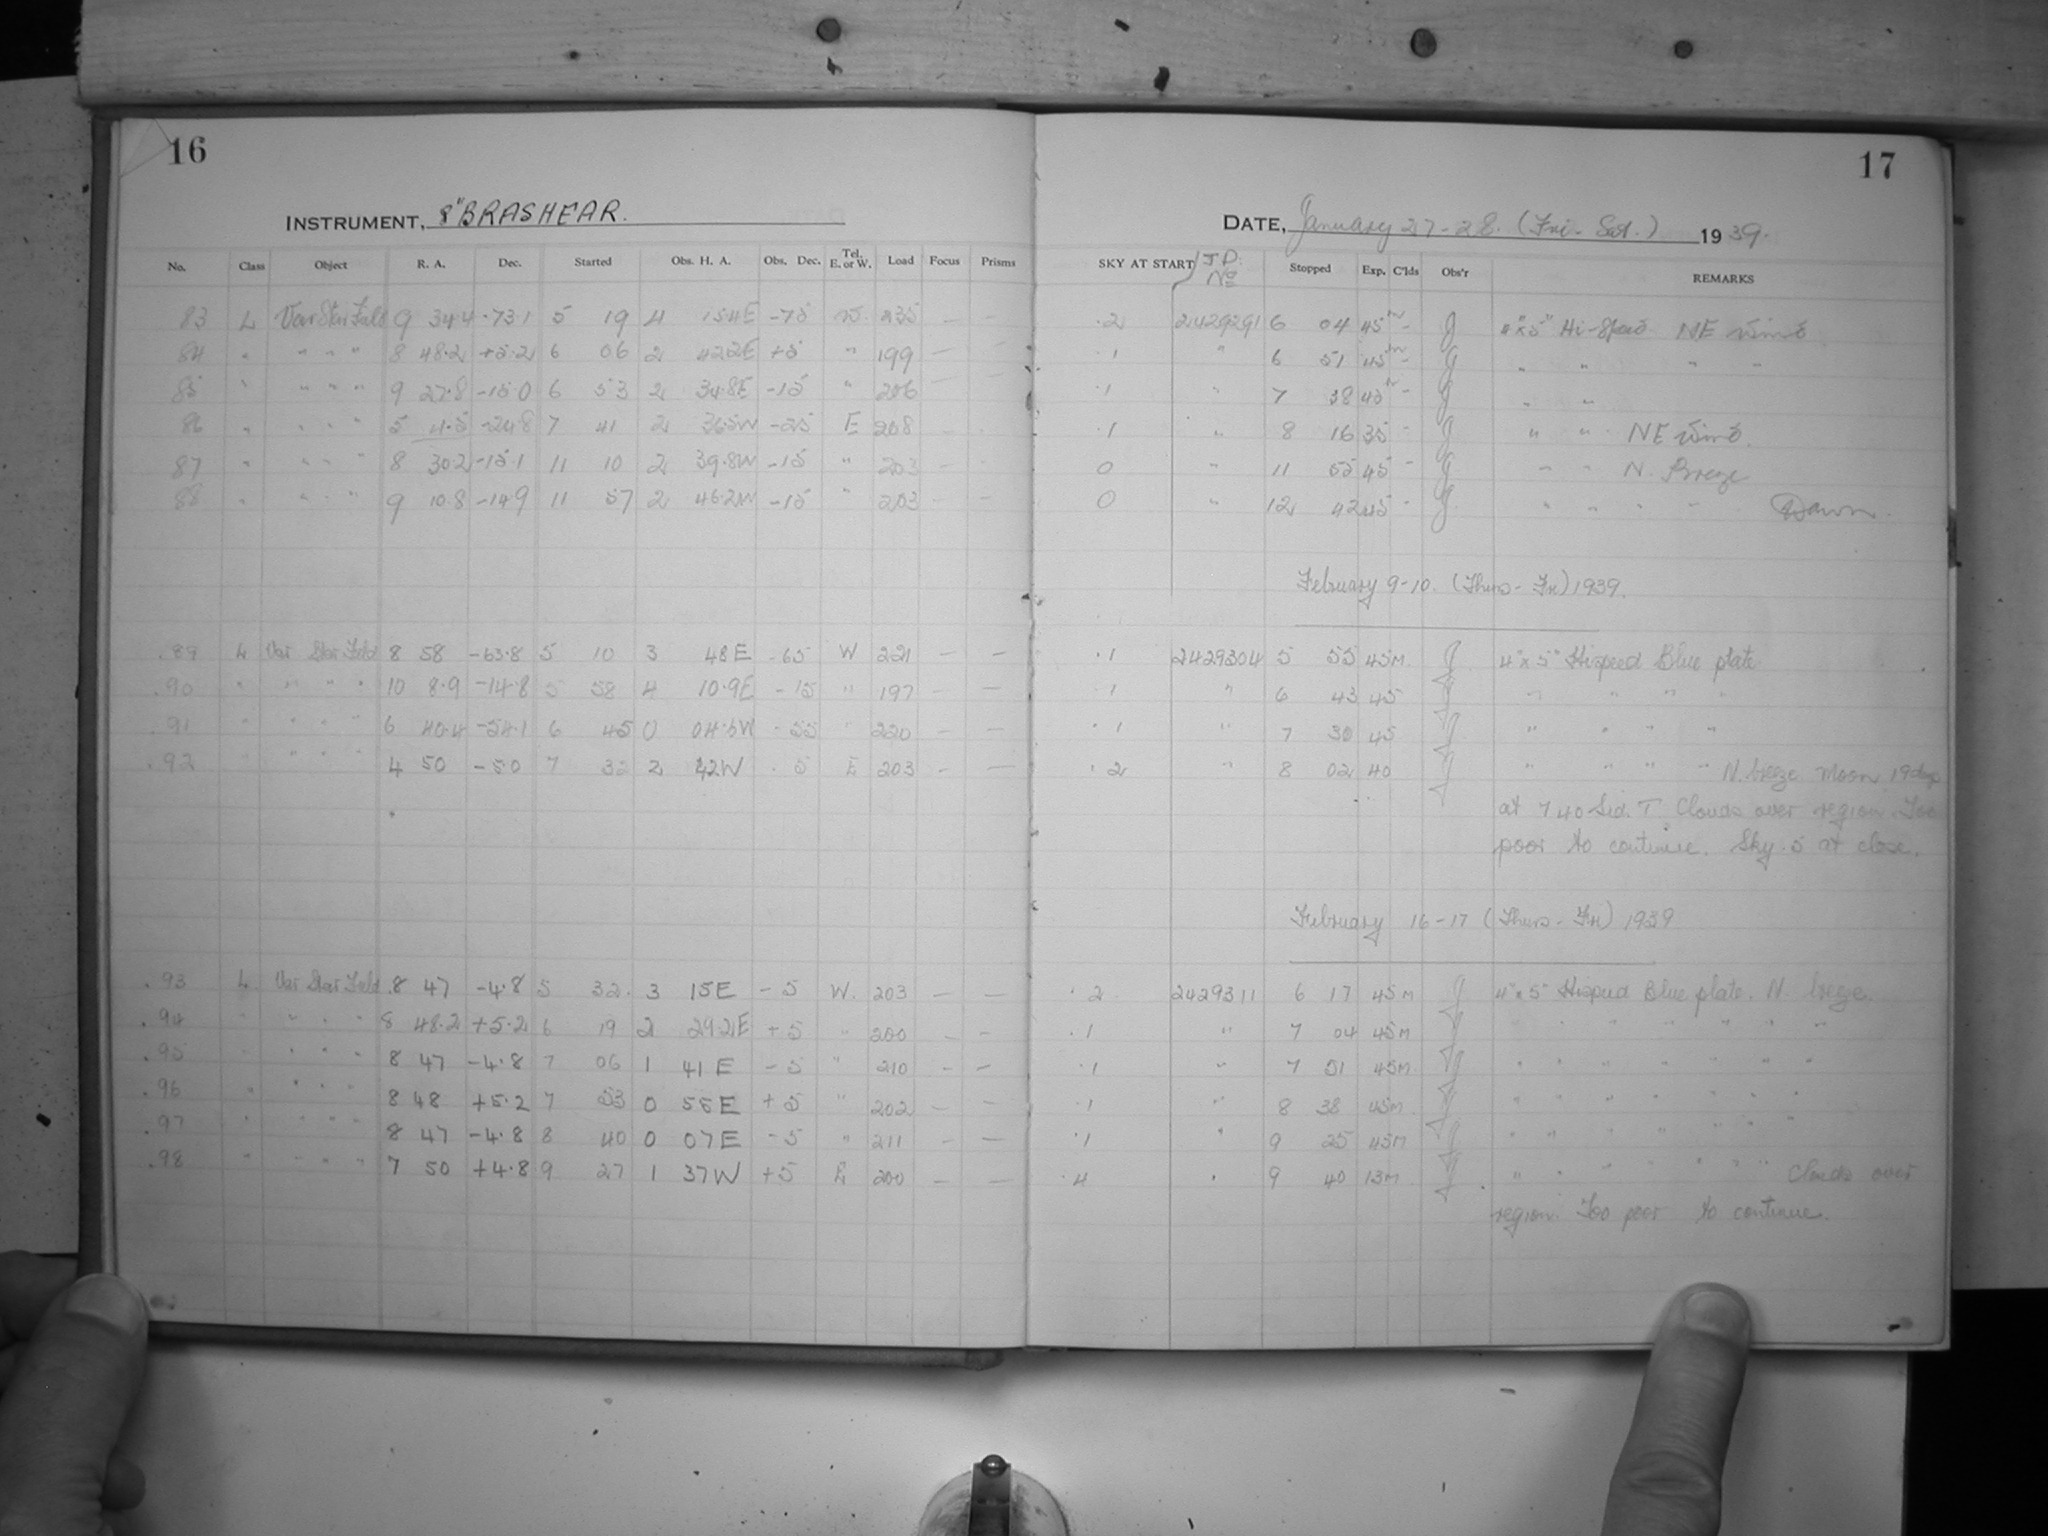 16
17
INSTRUMENT, 8" BRASHEAR.
DATE, January 27-28. (Fri - Sat.) 1939.
No. Class Object R. A. Dec. Started Obs. H. A. Obs. Dec. Tel. E. or W. Load Focus Prisms SKY AT START J.D. No Stopped Exp. C'lds Obs'r REMARKS
83 L Var Star Field 9 34.4 -73.1 5 19 4 15.4E -75 W 235 — — .2 2429291 6 04 45m - J 4"x5" Hi-Speed NE wind
84 " " " " 8 48.2 +5.2 6 06 2 42.2E +5 " 199 — — .1 " 6 51 45m - J " " " "
85 " " " " 9 27.8 -15.0 6 53 2 34.8E -15 " 206 — — .1 " 7 38 45m - J " "
86 " " " " 5 4.5 -24.8 7 41 2 36.5W -25 E 208 — — .1 " 8 16 35 - J " " NE wind.
87 " " " " 8 30.2 -15.1 11 10 2 39.8W -15 " 203 — — 0 " 11 55 45 - J " " N. Breeze
88 " " " " 9 10.8 -14.9 11 57 2 46.2W -15 " 203 — — 0 " 12 42 45 - J " " " " Dawn.
February 9-10. (Thurs - Fri) 1939.
.89 L Var Star Field 8 58 -63.8 5 10 3 48E -65 W 221 — — .1 2429304 5 55 45m J 4"x5" Hispeed Blue plate
.90 " " " " 10 8.9 -14.8 5 58 4 10.9E -15 " 197 — — .1 " 6 43 45 J " " " "
.91 " " " " 6 40.4 -54.1 6 45 0 04.6W -55 " 220 — — .1 " 7 30 45 J " " " "
.92 " " " " 4 50 -5.0 7 32 2 42W -5 E 203 — — .2 " 8 02 40 J " " " " N. breeze Moon 19 days
at 7 40 Sid. T Clouds over region. Too
poor to continue. Sky .5 at close.
February 16-17 (Thurs - Fri) 1939
.93 L Var Star Field .8 47 -4.8 5 32. 3 15E -5 W. 203 — — .2 2429311 6 17 45m J 4"x5" Hispeed Blue plate. N. breeze.
.94 " " " " 8 48.2 +5.2 6 19 2 29.2E +5 " 200 — — .1 " 7 04 45m J " " " " " "
.95 " " " " 8 47 -4.8 7 06 1 41E -5 " 210 — — .1 " 7 51 45m J " " " " " "
.96 " " " " 8 48 +5.2 7 53 0 55E +5 " 202 — — .1 " 8 38 45m J " " " " " "
.97 " " " " 8 47 -4.8 8 40 0 07E -5 " 211 — — .1 " 9 25 45m J " " " " " "
.98 " " " " 7 50 +4.8 9 27 1 37W +5 E 200 — — .4 " 9 40 13m J " " " " " " Clouds over
region. Too poor to continue.